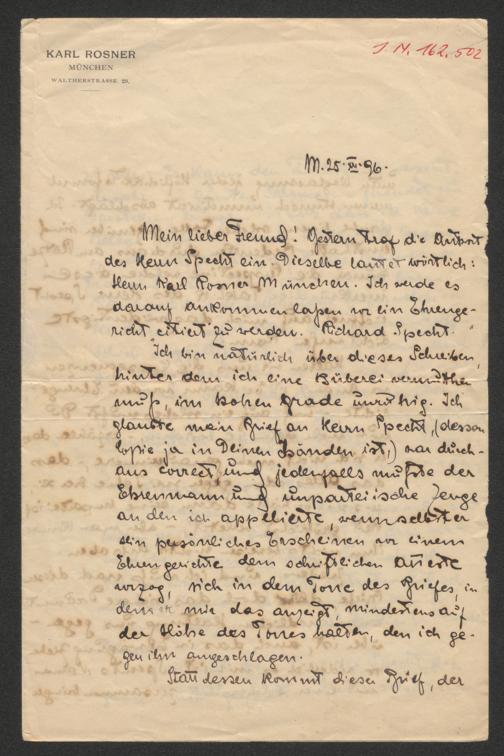 KARL ROSNER
MÜNCHEN
WALTHERSTRASSE 29.
J N. 162.502
M. 25. XI. 96.
Mein lieber Freund! Gestern traf die Antwort
des Herrn Specht ein. Dieselbe lautet wörtlich:
Herrn Karl Rosner München. Ich werde es
darauf ankommen laßen vor ein Ehrenge-
richt citiert zu werden. Richard Specht."
Ich bin natürlich über dieses Schreiben,
hinter dem ich eine Büberei vermuthen
muß, im hohen Grade unruhig. Ich
glaubte mein Brief an Herrn Specht, (dessen
Copie ja in Deinen Händen ist,) war durch-
aus correct, und jedenfalls mußte der
Ehrenmann und unparteiische Zeuge
an den ich appelierte, wenn selbst er
sein persönliches Erscheinen vor einem
Ehrengerichte dem schriftlichen Atteste
vorzog, sich in dem Tone des Briefes, in
dem er mir das anzeigt, mindestens auf
der Höhe des Tones halten, den ich ge-
gen ihn angeschlagen.
Statt dessen kommt dieser Brief, der